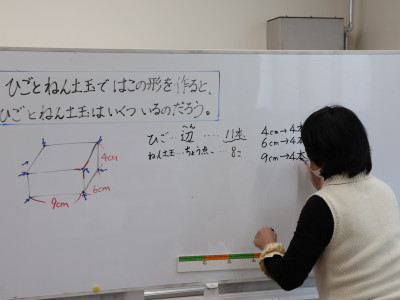 ひごとねん土玉ではこの形を作ると、
ひごとねん土玉はいくついるのだろう。
へん
ひご…辺……11本
ねん土玉…ちょう点…8こ
4cm→4本
6cm→4本
9cm→4本
4cm
6cm
9cm